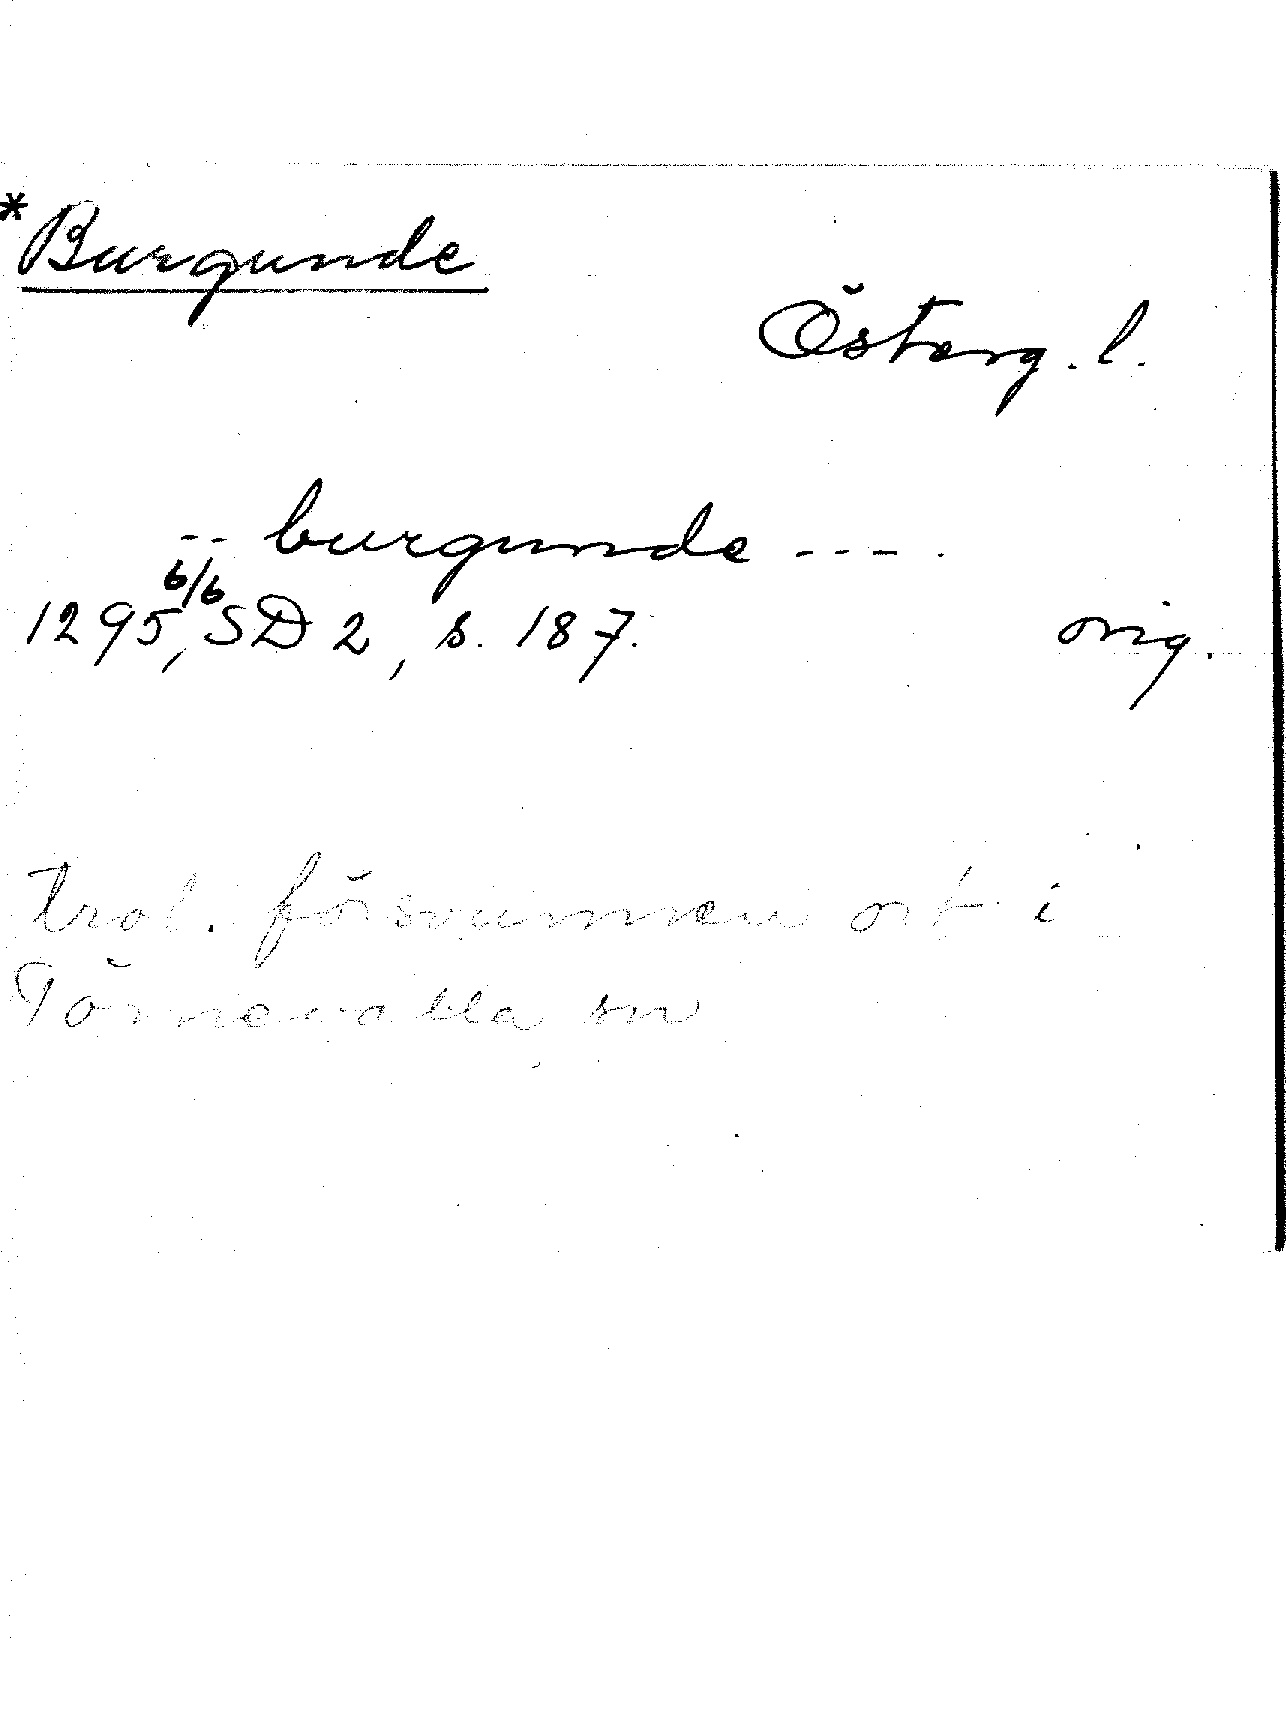 *Burgunde
Österg. l.
-- burgunde ----.
1295 6/6, SD 2, s. 187. orig.
trol. försvunnen ort i
Törnevalla sn